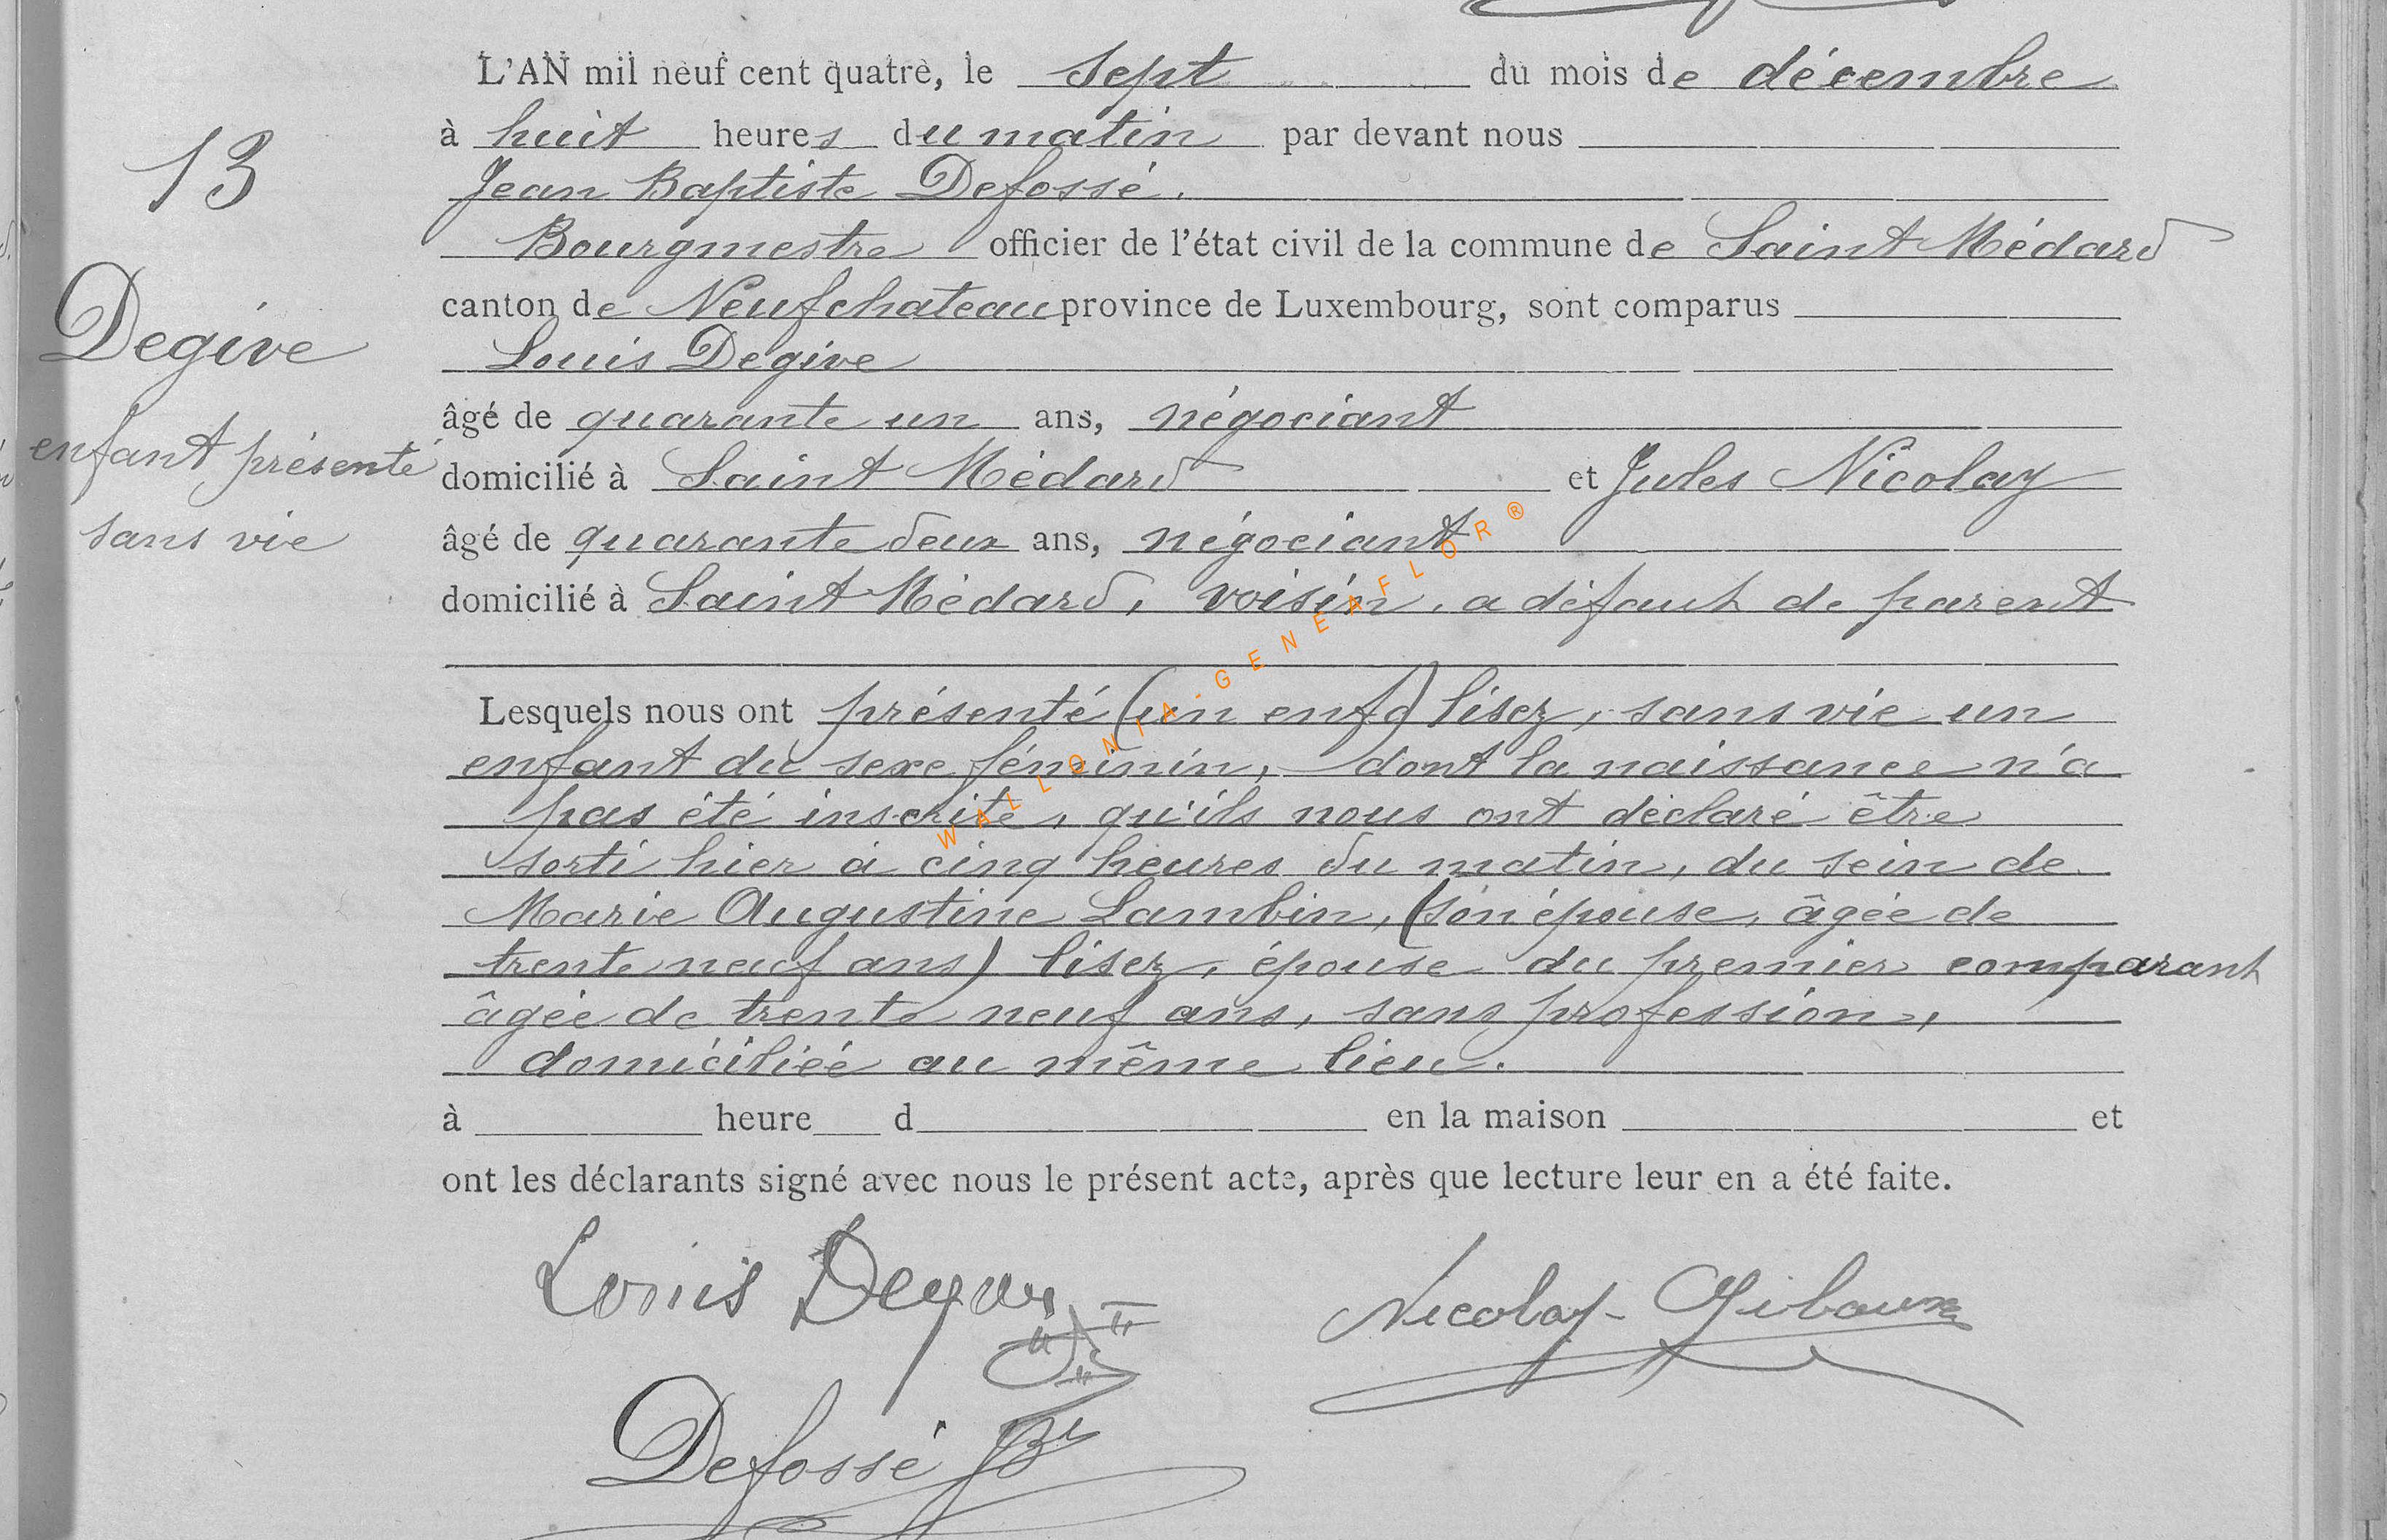 L'AN mil neuf cent quatre, le sept du mois de décembre
à huit heures du matin par devant nous
13
Jean Baptiste Defossé.
Bourgmestre officier de l'état civil de la commune de Saint Médard
canton de Neufchateau province de Luxembourg, sont comparus
Degive
Louis Degive
âgé de quarante un ans, négociant
enfant présenté
domicilié à Saint Médard et Jules Nicolay
sans vie
âgé de quarante deux ans, négociant
domicilié à Saint Médard, voisin, a défaut de parent
Lesquels nous ont présenté (un enfa) lisez, sans vie un
enfant du sexe féminin, dont la naissance n'a
pas été inscrite, qu'ils nous ont déclaré être
sorti hier à cinq heures du matin, du sein de
Marie Augustine Lambin, (son épouse, âgée de
trente neuf ans) lisez, épouse du premier comparant
âgée de trente neuf ans, sans profession,
domiciliée au même lieu.
à heure d en la maison et
ont les déclarants signé avec nous le présent acte, après que lecture leur en a été faite.
Louis Degive
Nicolay-Giboux
Defossé JB
WALLONIA-GENEAFLOR®